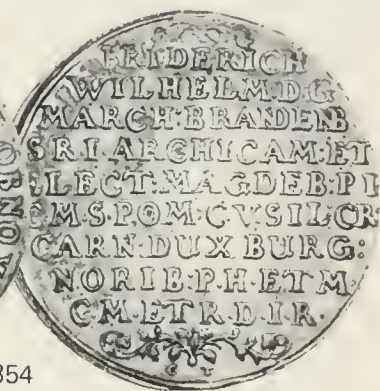 FRIDERICH
WILHELM·D·G
MARCH·BRANDENB
S·R·I·ARCHICAM·ET
ELECT·MAGDEB·P·I
C·M·S·POM·C·V·SIL·CR
CARN·DUX BURG:
NORIB·P·H·ET M·
C·M·ET R·D·I·R·
354